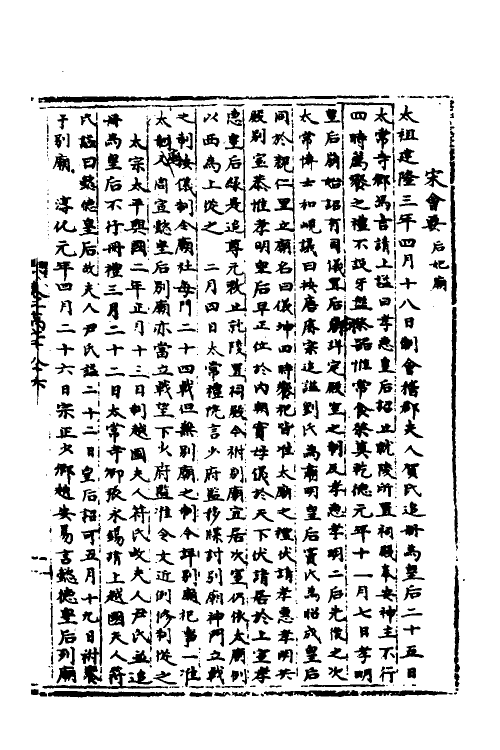 宋會要后妃廟
太祖建隆三年四月十八日制會稽郡夫人賀氏追冊為皇后二十五日
太常寺卿馮吉請上謚曰孝惠皇后詔止就陵所置祠殿奉安神主不行
四時薦饗之禮不設牙盤祭器惟常食薦奠乾德元年十一月七日孝明
皇后廟始詔有司議置后廟詳定殿室之制及孝惠孝明二后先後之次
太常博士和峴議曰按唐睿宗追謚劉氏為肅明皇后竇氏為昭成皇后
同於親仁里立廟名曰儀坤四時饗祀皆準太廟之禮伏請孝惠孝明共
殿別室恭惟孝明皇后早正位於內朝實母儀於天下伏請居於上室孝
惠皇后緣是追尊元敕止就陵置祠殿今祔別廟宜居次室仍依太廟例
以西為上從之 二月四日太常禮院言少府監移牒討別廟神門立戟
之制按儀制令廟社每門二十四戟但無別廟之制今詳別廟祀事一准
太廟又 宣懿皇后別廟亦當立戟望下少府監准令文近例修制從之
太宗太平興國二年正月十三日制越國夫人符氏故夫人尹氏並追
冊為皇后不行冊禮三月二十二日太常寺卿張永錫請上越國夫人符
氏謚曰懿德皇后故夫人尹氏謚 二十二日皇后詔可五月十九日祔饗
于別廟 淳化元年四月二十六日宗正少卿趙安易言懿德皇后別廟